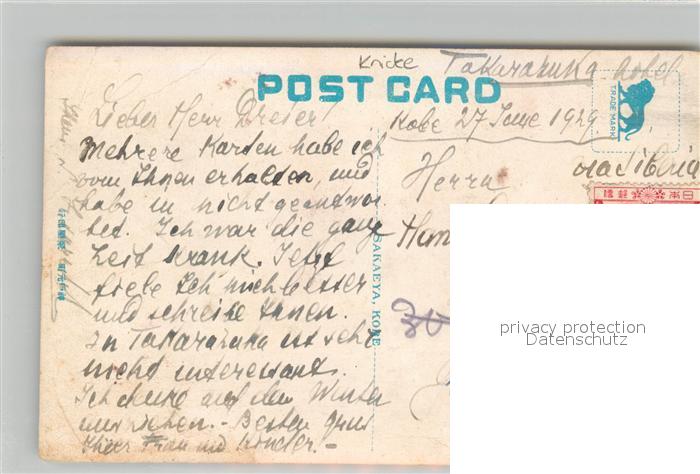 Knicke
Takarazuka hotel
POST CARD
TRADE MARK
Lieber Herr Dreier!
Kobe 27 June 1929
Mehrere Karten habe ich
vom Ihnen erhalten, und
habe in nicht geantwor
tet. Ich war die ganz
Zeit krank. Jetzt
fiele Ich mich besser
und schreibe Ihnen.
In Takarazuka ist sehr
nicht interessant.
Ich auf den Winter
Besten grus
Ihrer Frau und Kinder. –
via Siberia
Herrn
Ham
SAKAEYA, KOBE
privacy protection
Datenschutz